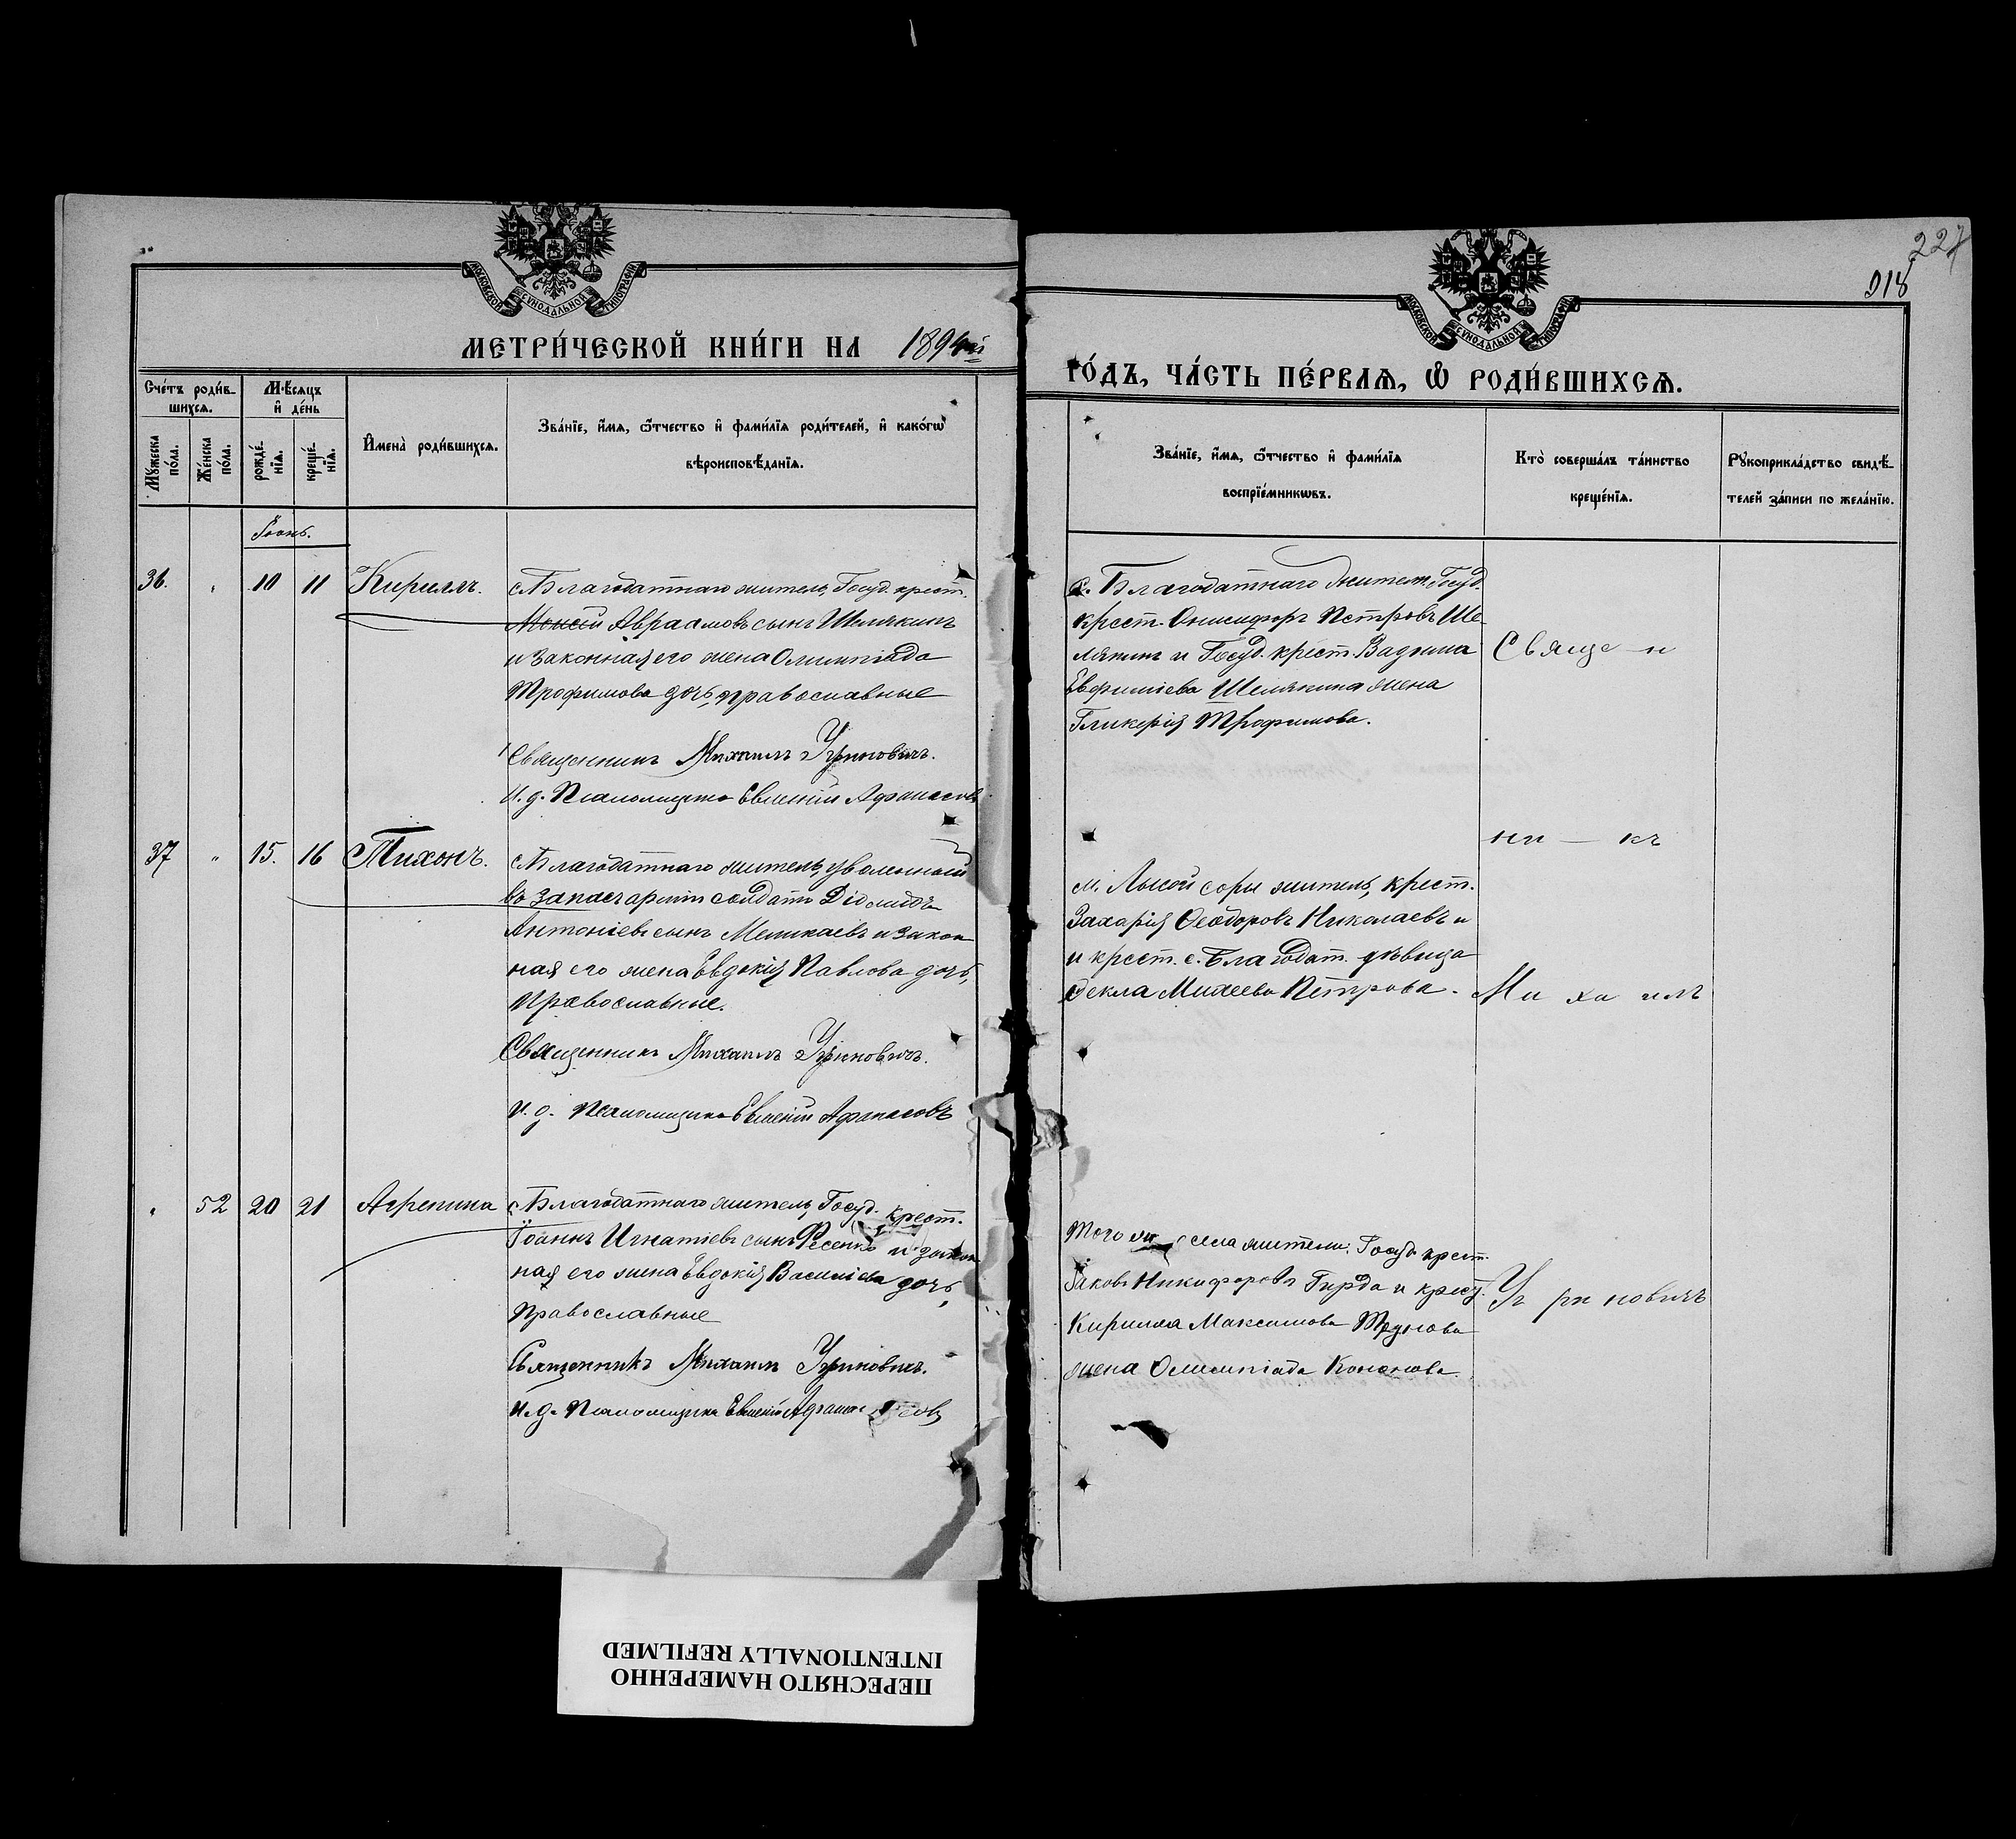 227
918
МОСКОВСКОЙ СѴНОДАЛЬНОЙ ТИПОГРАФІИ
МОСКОВСКОЙ СѴНОДАЛЬНОЙ ТИПОГРАФІИ
МЕТРИ́ЧЕСКОЙ КНИ́ГИ НА 1894й
ГО́ДЪ, ЧА́СТЬ ПЕ́РВАѦ, Ѿ РОДИ́ВШИХСѦ.
Сче́тъ роди́в-
шихсѧ.
Мѣ́сѧцъ
и҆ де́нь
Мꙋжеска по́ла.
Же́нска по́ла.
рожде́-нїѧ.
креще́-нїѧ.
И҆мена̀ роди́вшихсѧ.
Зва́нїе, и҆́мѧ, ѻ҆́тчество и҆ фами́лїѧ роди́телей, и҆ како́гѡ
вѣроисповѣ́данїѧ.
Зва́нїе, и҆́мѧ, ѻ҆́тчество и҆ фами́лїѧ
воспрїе́мникѡвъ.
Кто̀ соверша́лъ та́инство
креще́нїѧ.
Рꙋкоприкла́дство свидѣ́-
телей за́писи по жела́нїю.
Іюнь.
36. „ 10 11 Кириллъ.
с. Благодатнаго житель, Госуд. крест.
Моисей Авраамовъ сынъ Шемякинъ
и законная его жена Олимпіада
Трофимова дочь, православные
Священникъ Михаилъ Угриновичъ.
И. д. Псаломщика Евменій Афанасовъ
с. Благодатнаго жители: Госуд.
крест. Онисифоръ Петровъ Ше-
мякинъ и Госуд. крест. Вадима
Евфиміева Шемякина жена
Гликерія Трофимова.
Священ
ни — къ
37 „ 15. 16 Тихонъ.
с. Благодатнаго житель, уволенный
въ запасъ арміи солдатъ Діомидъ
Антоніевъ сынъ Меликаевъ и закон
ная его жена Евдокія Павлова дочь,
Православные.
Священникъ Михаилъ Угриновичъ.
И. д. Псаломщика Евменій Афанасовъ
м. Лысой горы житель, крест.
Захарія Ѳеодоровъ Николаевъ и
и крест. с. Благодат. дѣвица
Ѳекла Михеева Петрова.
Ми ха илъ
„ 52 20 21 Агрепина
с. Благодатнаго житель, Госуд. крест.
Іоаннъ Игнатіевъ сынъ Фесенко и закон
ная его жена Евдокія Василіева дочь,
Православные
Священникъ Михаилъ Угриновичъ.
И. д. Псаломщика Евменій Афанасовъ
Того же села жители: Госуд. крест.
Іаковъ Никифоровъ Гирда и крест.
Кирилла Максимова Трунова
жена Олимпіада Кононова.
Уг ри новичъ
ПЕРЕСНЯТО НАМЕРЕННО
INTENTIONALLY REFILMED